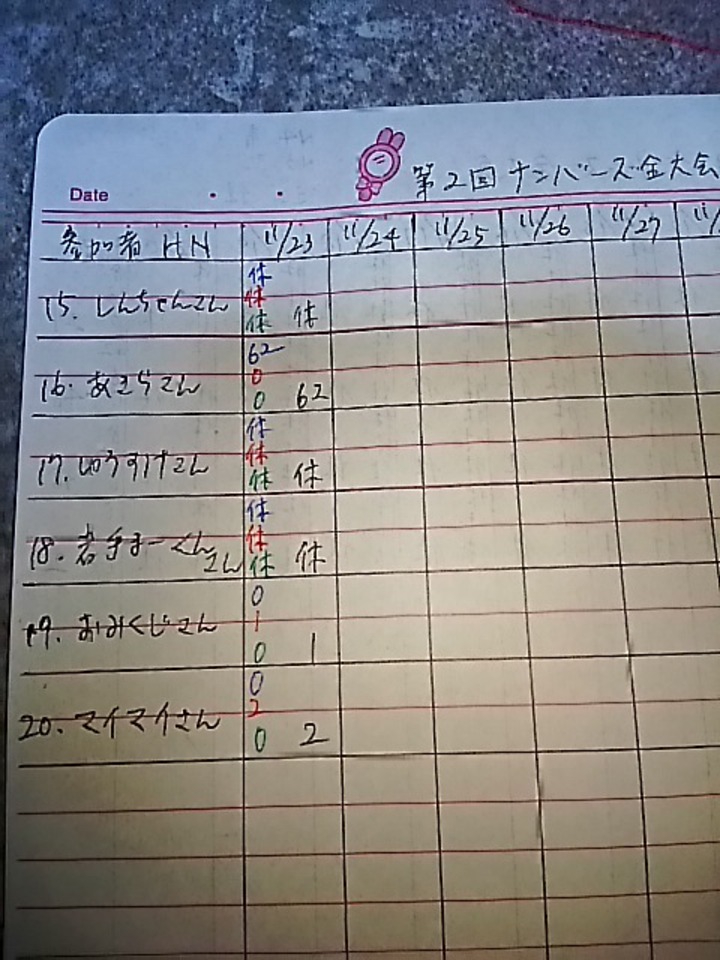 Date
第2回 ナンバーズ金大会
参加者 HN 11/23 11/24 11/25 11/26 11/27 11/
休
休
15. しんちゃんさん 休 休
62
0
16. あきらさん 0 62
休
休
17. ゆうすけさん 休 休
休
休
18. 岩手まーくんさん 休 休
0
1
19. おみくじさん 0 1
0
2
20. マイマイさん 0 2